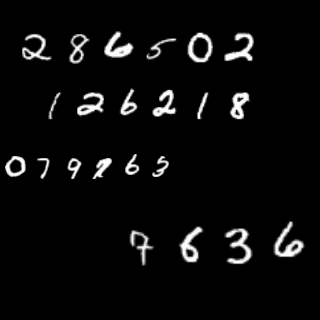 286502
126218
079263
7636